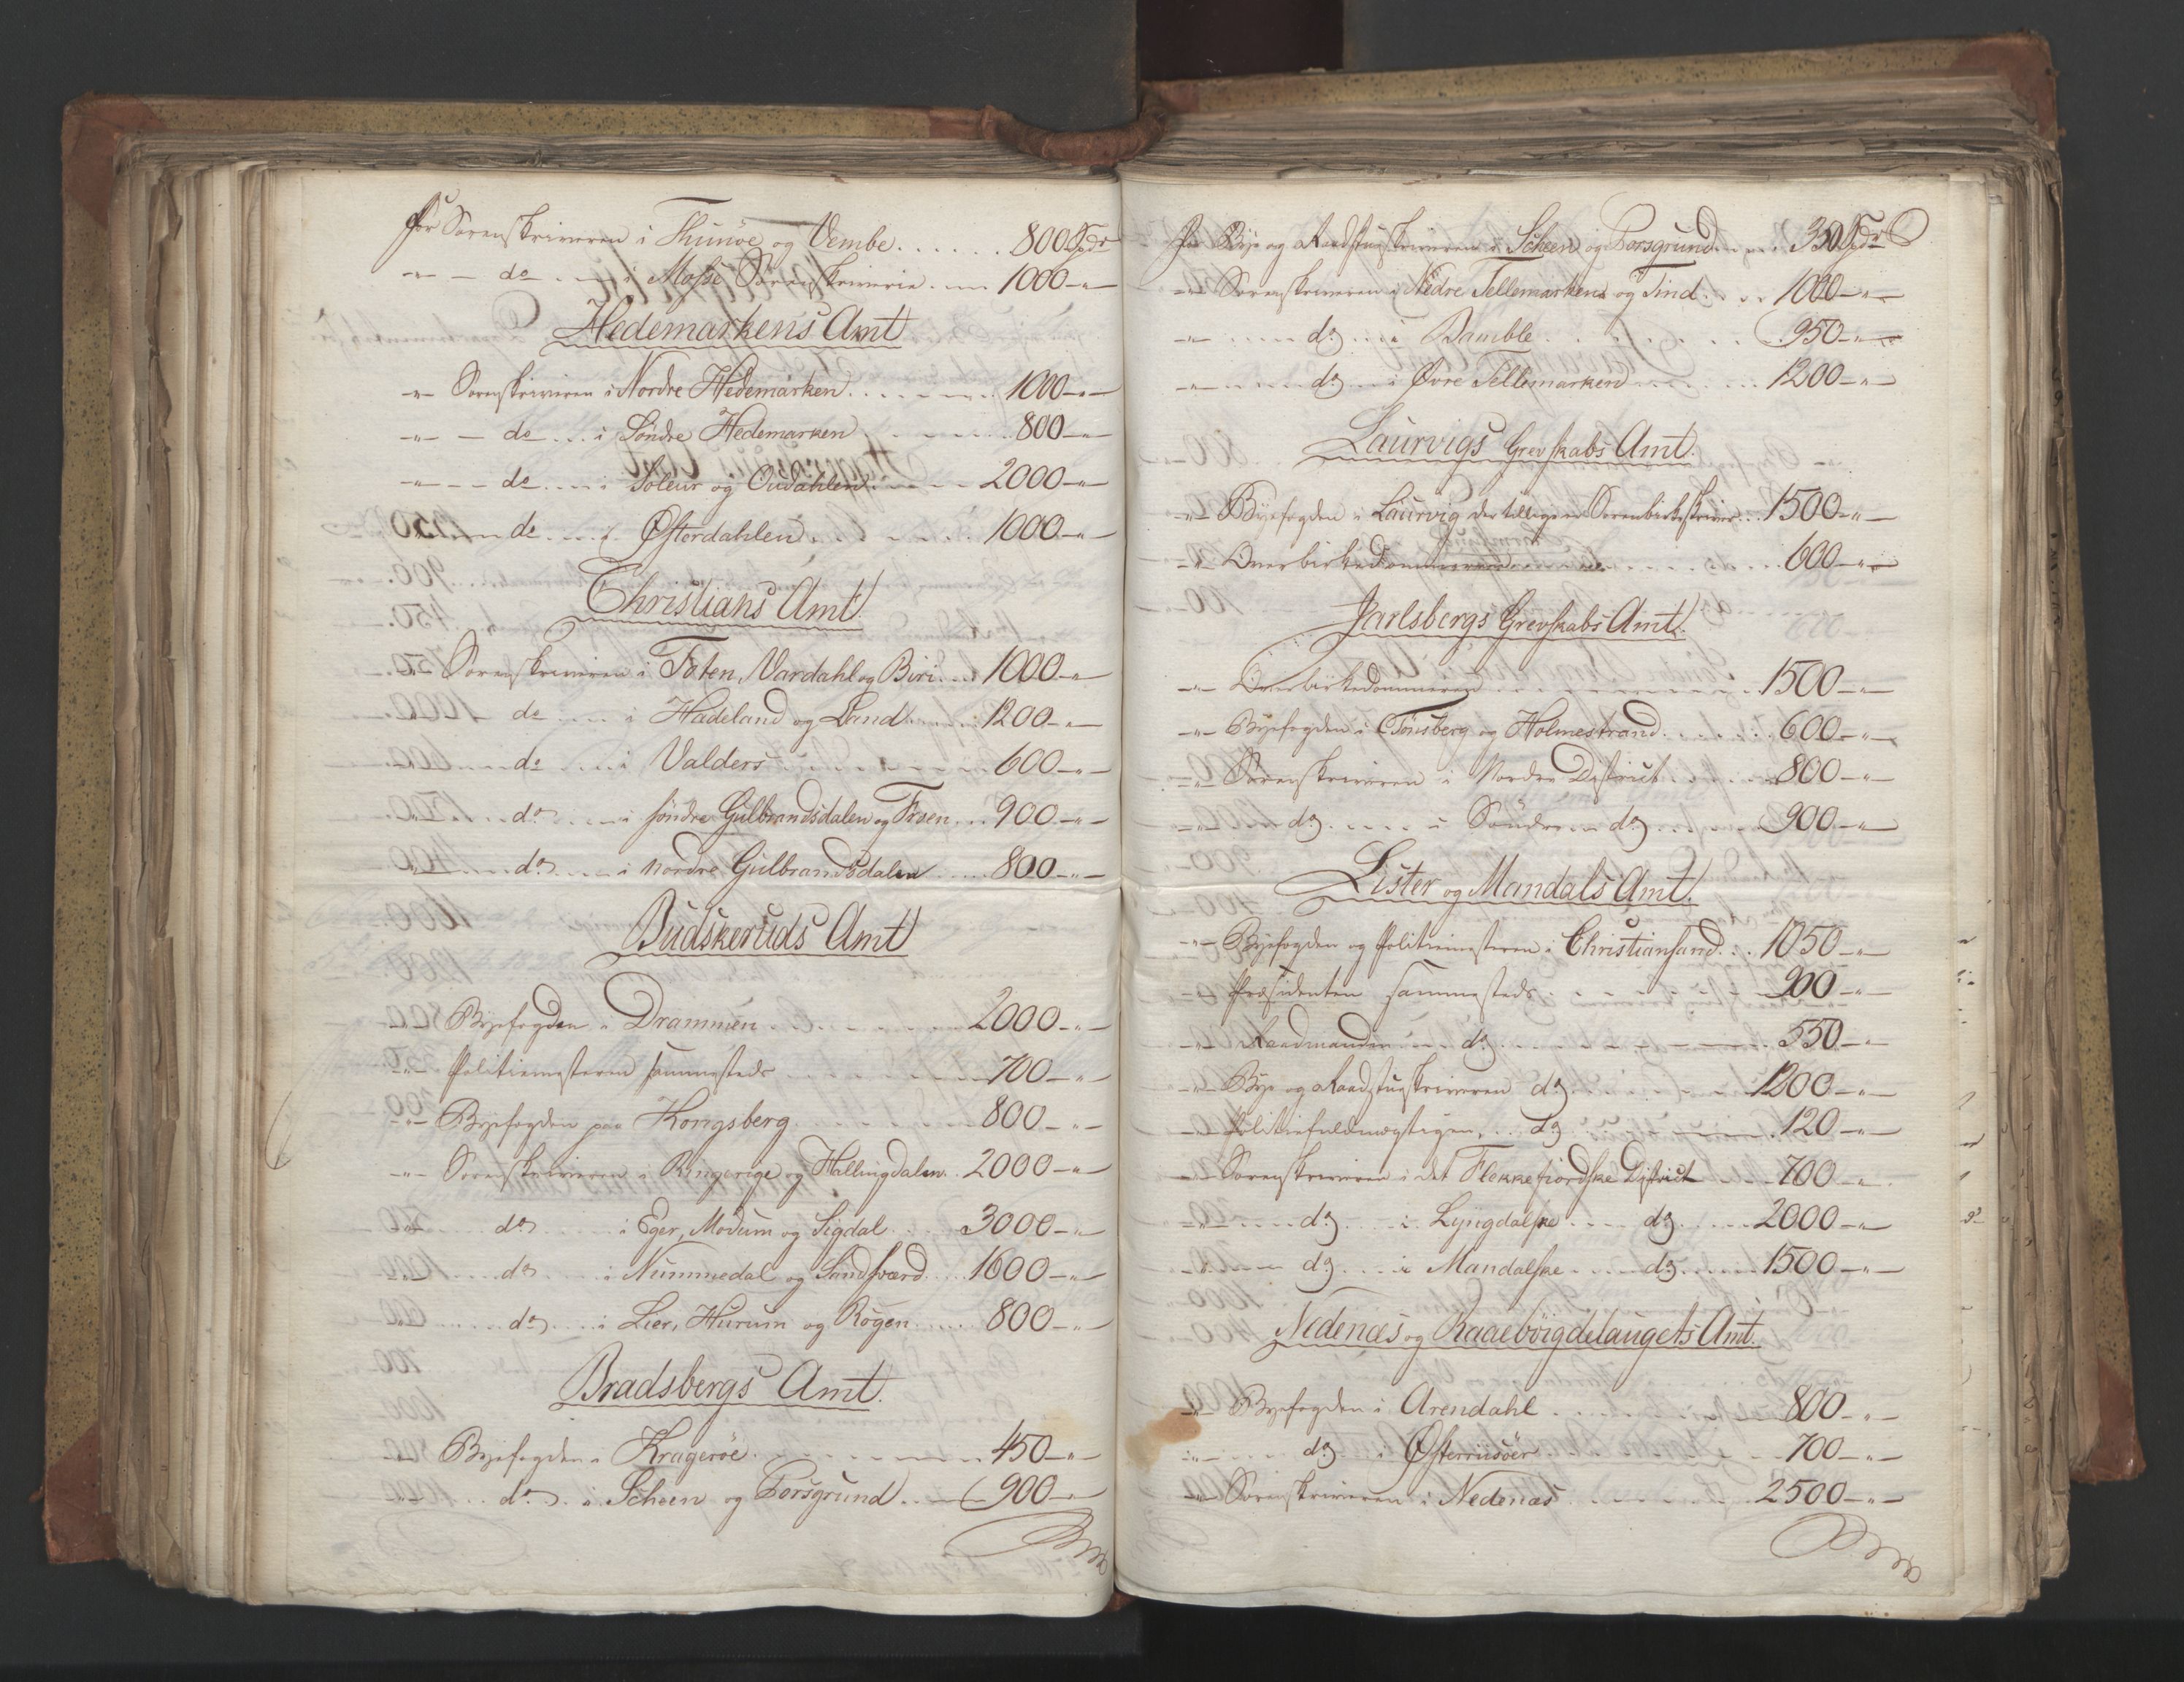 for Sorenskriveren i Thunøe og Vembe . . . . . . 800 Spdr
-"- — do . — i Mosse Sorenskriverie . — 1000-"-
Hedemarkens Amt
-"- Sorenskriveren i Nordre Hedemarken . . . . . . 1000-"-
-"- — do . . . i Söndre Hedemarken . . . . . . 800-"-
-"- - - do . . . i Soleur og Oudahlen . . . . 2000-"-
-"- do . . . i Østerdahlen . . . . . . 1000-"-
Christians Amt
-"- Sorenskriveren i Toten, Vardahl og Biri . . . 1000-"-
-"- do . . . i Hadeland og Land . . . . 1200-"-
-"- do . . . i Valders . . . . . . 600-"-
-"- do . . . i söndre Gulbrandsdalen og Froen . . . 900-"-
-"- do . . . i nordre Gulbrandsdalen . . . . 800-"-
Budskeruds Amt
-"- Byefogden i Drammen . . . . . . 2000-"-
-"- Politiemesteren sammesteds . . . . . . 700-"-
-"- Byefogden paa Kongsberg . . . . . . 800-"-
-"- Sorenskriveren i Ringerige og Hallingdalen . . 2000-"-
-"- do . . . i Eger, Modum og Sigdal . . . 3000-"-
-"- do . . . i Nummedal og Sandsværd . . . 1600-"-
-"- do . . . i Lier, Hurum og Rögen . . . . 800-"-
Bradsbergs Amt.
-"- Byefogden i Kragerøe . . . . . . 450-"-
-"- . . do . i Scheen og Porsgrund . . — 900-"-
for Bye og Raadstueskriveren i Scheen og Porsgrund . . . 350 Spdr
-"- Sorenskriveren i Nedre Tellemarken og Tind . . . 1000-"-
-"- . . . do . . i Bamble . . . . . . 950-"-
-"- . . . do . . i Øvre Tellemarken . . . . . . 1200-"-
Laurvigs Grevskabs Amt.
-"- Byefogden i Laurvig der tillige er Sorenbirkeskriver . . 1500-"-
-"- Overbirkedommeren . . . . . . 600-"-
Jarlsbergs Grevskabs Amt.
-"- Overbirkedommeren . . . . . . 1500-"-
-"- Byefogden i Tönsberg og Holmestrand . . . . . . 600-"-
-"- Sorenskriveren i Nordre District . . . . 800-"-
-"- . . . do . . . i Søndre . . do . . . . 900-"-
Lister og Mandals Amt.
-"- Byefogden og Politiemesteren i Christiansand . . . 1050-"-
-"- Præsidenten sammesteds . . . . . . 900-"-
-"- Raadmanden . . . do . . . . . . 550-"-
-"- Bye og Raadstueskriveren do . . . . . . 1200-"-
-"- Politiefuldmægtigen . . do . . . . . . 120-"-
-"- Sorenskriveren i det Flekkefiordske District . . . 700-"-
-"- . . . do . . . i Lyngdalske . . . do . . . 2000-"-
-"- . . . do . . . i Mandalske . . . do . . . 1500-"-
Nedenæs og Raaebøigdelaugets Amt.
-"- Byefogden i Arendahl . . . . . . 800-"-
-"- . . . do . i Østerriisöer . . . . . . 700-"-
-"- Sorenskriveren i Nedenæs . . . . . . 2500-"-